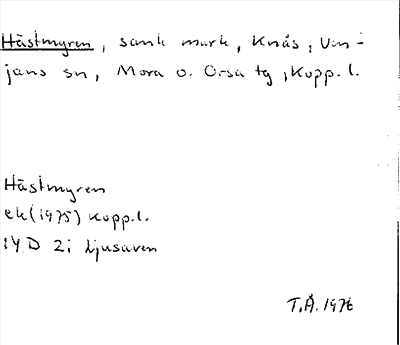 Hästmyren, sank mark, Knås, Ven-
jans sn, Mora o. Orsa tg, Kopp. l.
Hästmyren
ek (1975) Kopp. l.
14 D 2i Ljusaren
T.Å. 1976